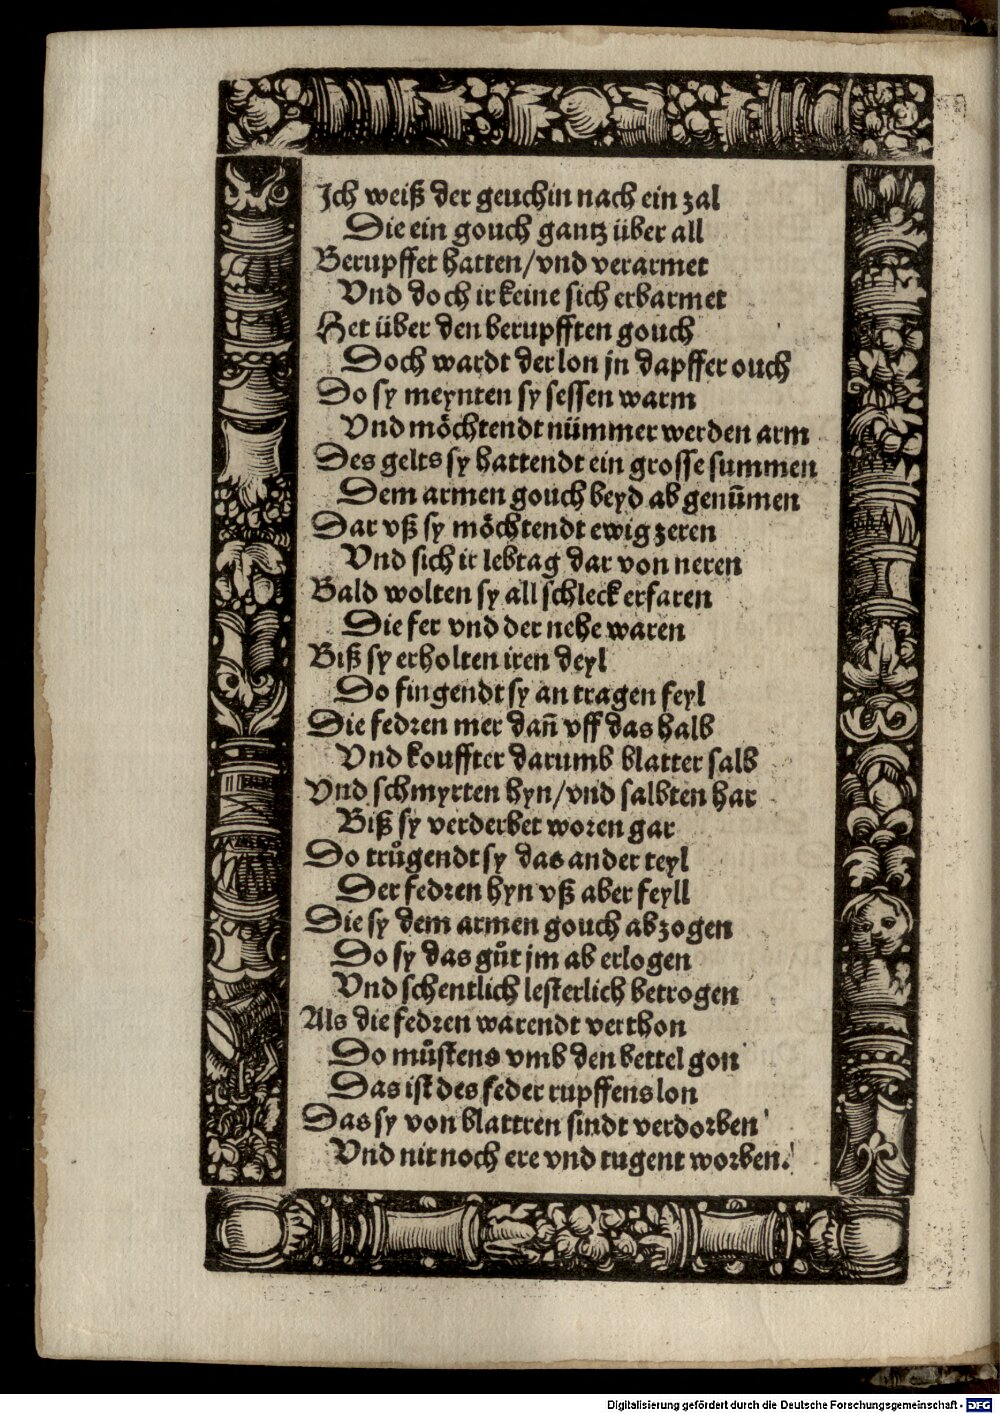 Ich weiß der geuchin nach ein zal
Die ein gouch gantz über all
Berupffet hatten/vnd verarmet
Vnd doch ir keine sich erbarmet
Het über den berupfften gouch
Doch wardt der lon jn dapffer ouch
Do sy meynten sy sessen warm
Vnd möchtendt nümmer werden arm
Des gelts sy hattendt ein grosse summen
Dem armen gouch beyd ab genūmen
Dar vß sy möchtendt ewig zeren
Vnd sich ir lebtag dar von neren
Bald wolten sy all schleck erfaren
Die fer vnd der nehe waren
Biß sy erholten iren deyl
Do fingendt sy an tragen feyl
Die fedren mer dañ vff das halb
Vnd kouffter darumb blatter salb
Vnd schmyrten hyn/vnd salbten har
Biß sy verderbet woren gar
Do trůgendt sy das ander teyl
Der fedren hyn vß aber feyll
Die sy dem armen gouch abzogen
Do sy das gůt jm ab erlogen
Vnd schentlich lesterlich betrogen
Als die fedren warendt verthon
Do můstens vmb den bettel gon
Das ist des feder rupffens lon
Das sy von blattren sindt verdorben
Vnd nit noch ere vnd tugent worben.
Digitalisierung gefördert durch die Deutsche Forschungsgemeinschaft - DFG